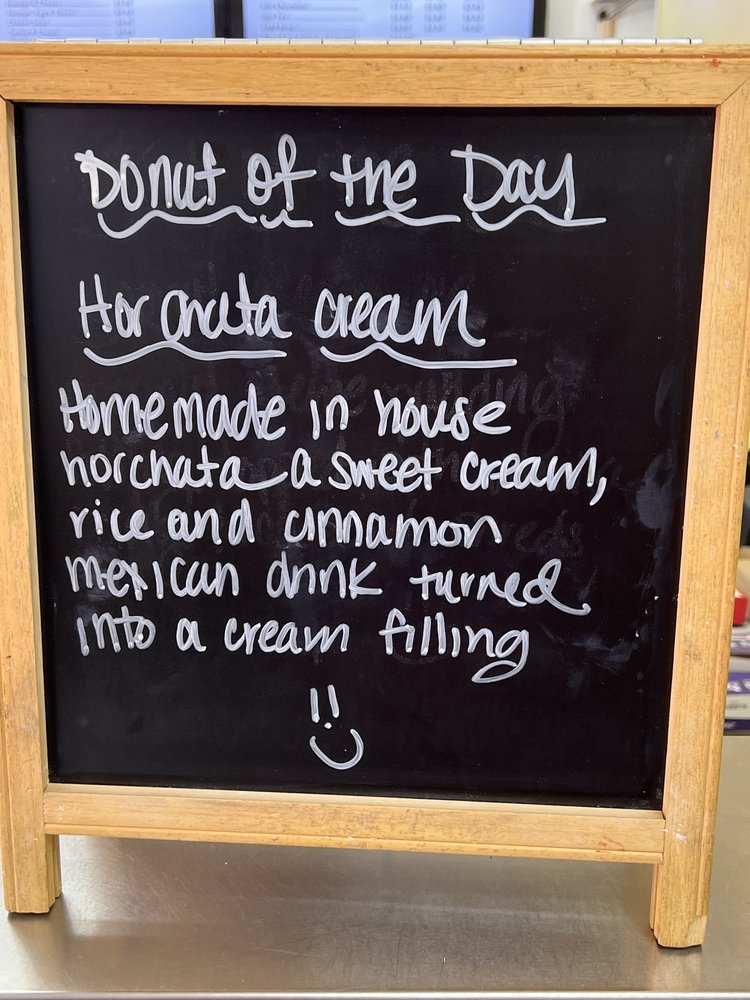 Donut of the Day
Horchata cream
Homemade in house
horchata a sweet cream,
rice and cinnamon
mexican drink turned
into a cream filling